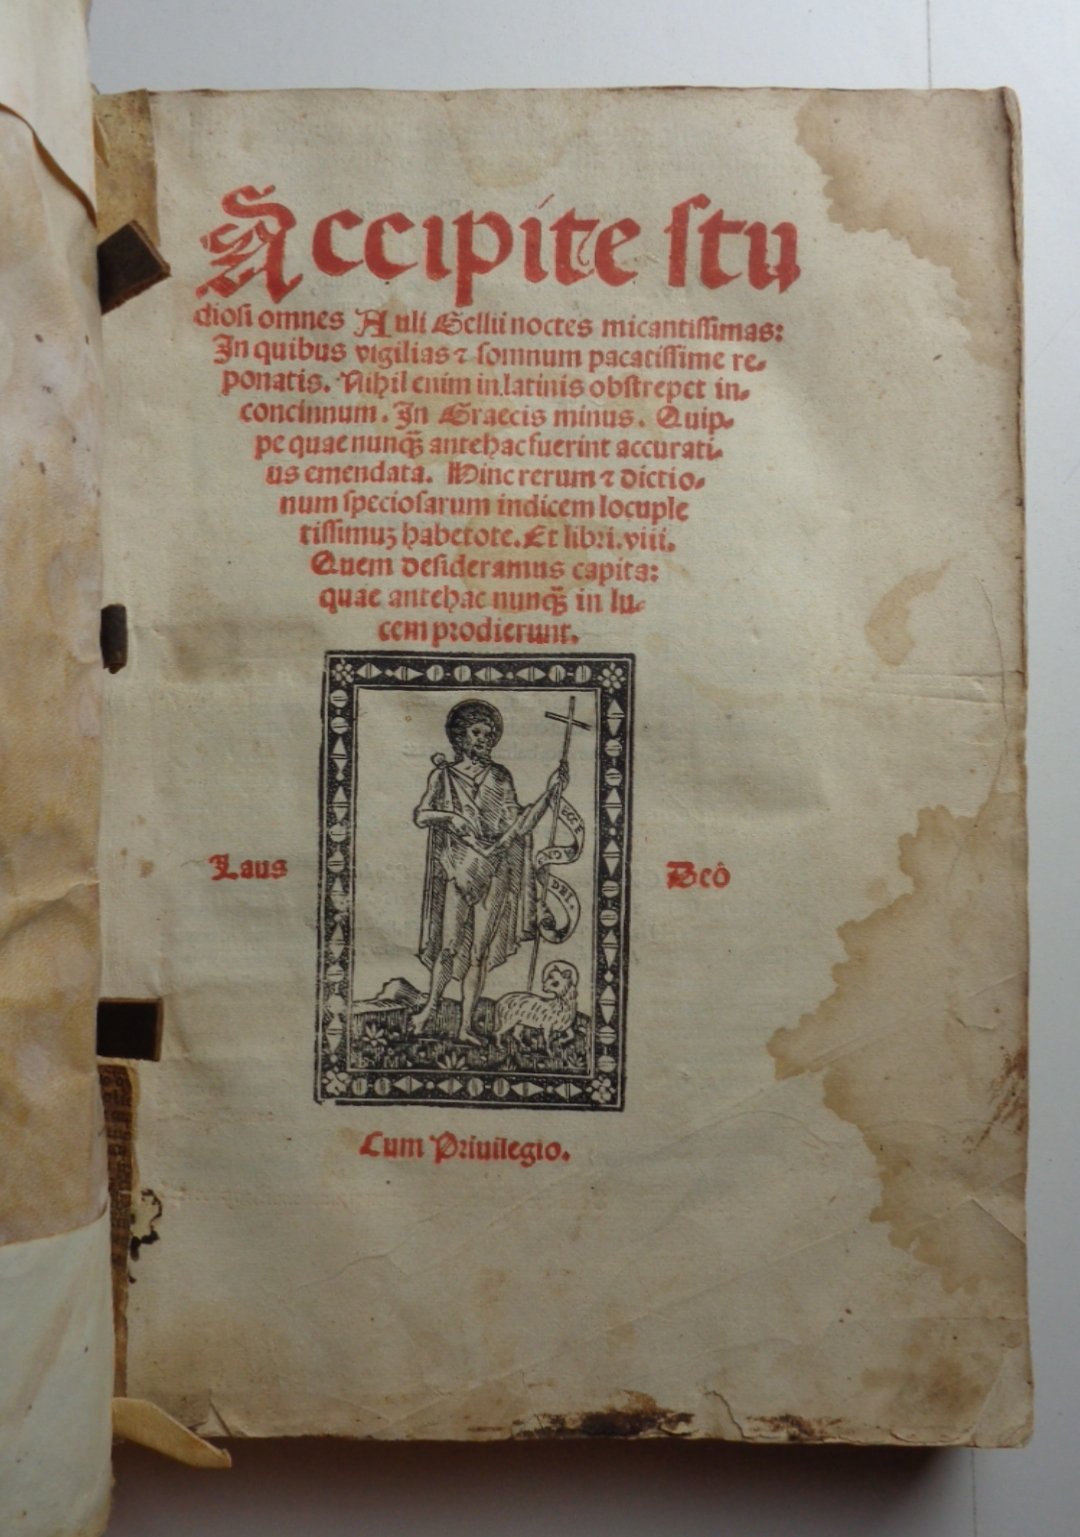 Accipite ſtu
dioſi omnes Auli Gellii noctes micantiſſimas:
In quibus vigilias ⁊ ſomnum pacatiſſime re-
ponatis. Nihil enim in latinis obſtrepet in-
concinnum. In Graecis minus. Quip-
pe quae nunq̃ antehac fuerint accurati-
us emendata. Hinc rerum ⁊ dictio-
num ſpecioſarum indicem locuple
tiſſimuꝫ habetote. Et libri. viii.
Quem deſideramus capita:
quae antehac nunq̃ in lu-
cem prodierunt.
ECCE
DEI.
Laus Deô
Cum Priuilegio.